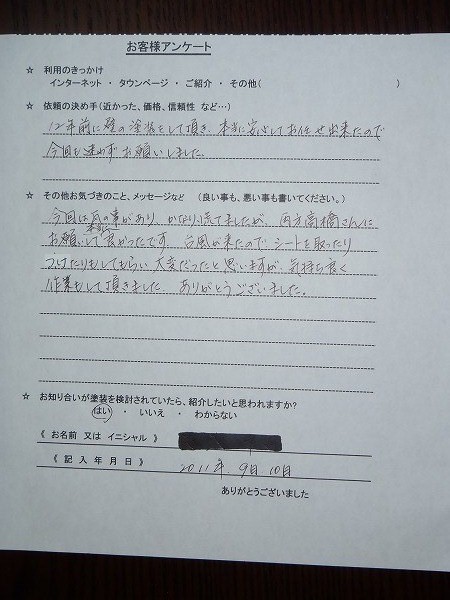 お客様アンケート
☆ 利用のきっかけ
インターネット ・ タウンページ ・ ご紹介 ・ その他( )
☆ 依頼の決め手(近かった、価格、信頼性 など…)
12年前に壁の塗装をして頂き、本当に安心してお任せ出来たので
今回も迷わずお願いしました。
☆ その他お気づきのこと、メッセージなど (良い事も、悪い事も書いてください。)
今回は の事があり、かなり てましたが、 高橋さんに
お願いして本当に良かったです。台風が来たので、シートを取ったり
つけたりもしてもらい大変だったと思いますが、気持ち良く
作業もして頂きました。ありがとうございました。
☆ お知り合いが塗装を検討されていたら、紹介したいと思われますか?
はい ・ いいえ ・ わからない
《 お名前 又は イニシャル 》
《 記 入 年 月 日 》 2011年 9月 10日
ありがとうございました